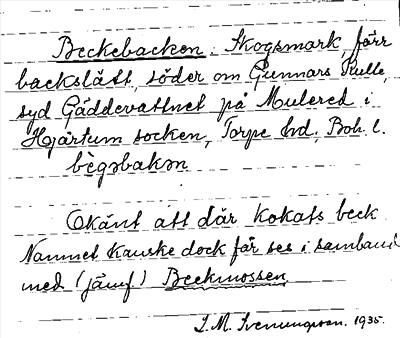 Beckebacken. Skogsmark, förr
backslått, söder om Gunnars Kulle,
syd Gäddevattnet på Mulered i
Hjärtum socken, Torpe hd, Boh. l.
bègəbakən
Okänt att där kokats beck
Namnet kanske dock får ses i samband
med (jämf) Beckmossen
S. M. Svenungsson. 1935.